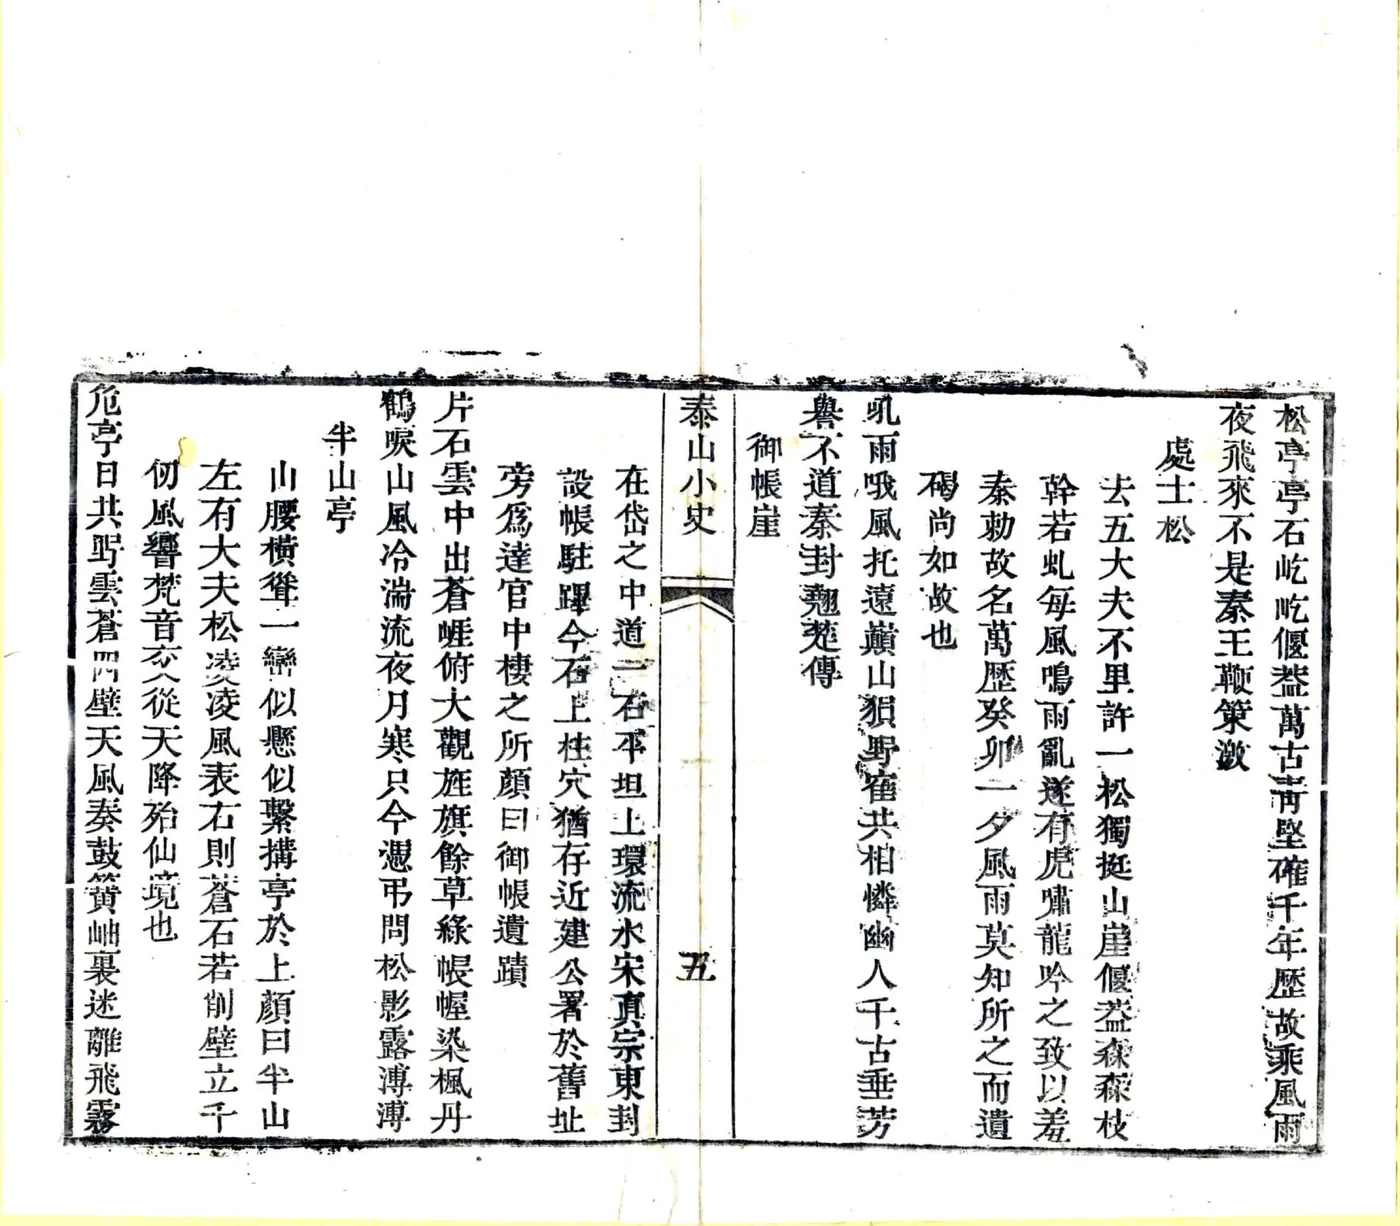 松亭亭石屹屹偃葢萬古靑堅確千年歷故乘風雨
夜飛來不是秦王鞭策激
處士松
去五大夫不里許一松獨挺山崖偃葢森森枝
幹若虬每風鳴雨亂遂有虎嘯龍吟之致以羞
秦勅故名萬歷癸卯一夕風雨莫知所之而遺
碣尚如故也
吼雨哦風托遠巔山狽野寉共相憐幽人千古垂芳
譽不道秦封翹楚傳
御帳崖
泰山小史
五
在岱之中道一石平坦上環流水宋眞宗東封
設帳駐蹕今石上柱穴猶存近建公署於舊址
旁爲達官中棲之所顏曰御帳遺蹟
片石雲中出蒼崕俯大觀旌旗餘草綠帳幄染楓丹
鶴唳山風冷湍流夜月寒只今憑弔問松影露溥溥
半山亭
山腰橫聳一巒似懸似繫搆亭於上顏曰半山
左有大夫松凌凌風表右則蒼石若削壁立千
仞風響梵音交從天降殆仙境也
危亭日共跻雲蒼四壁天風奏鼓簧岫裹迷離飛霧